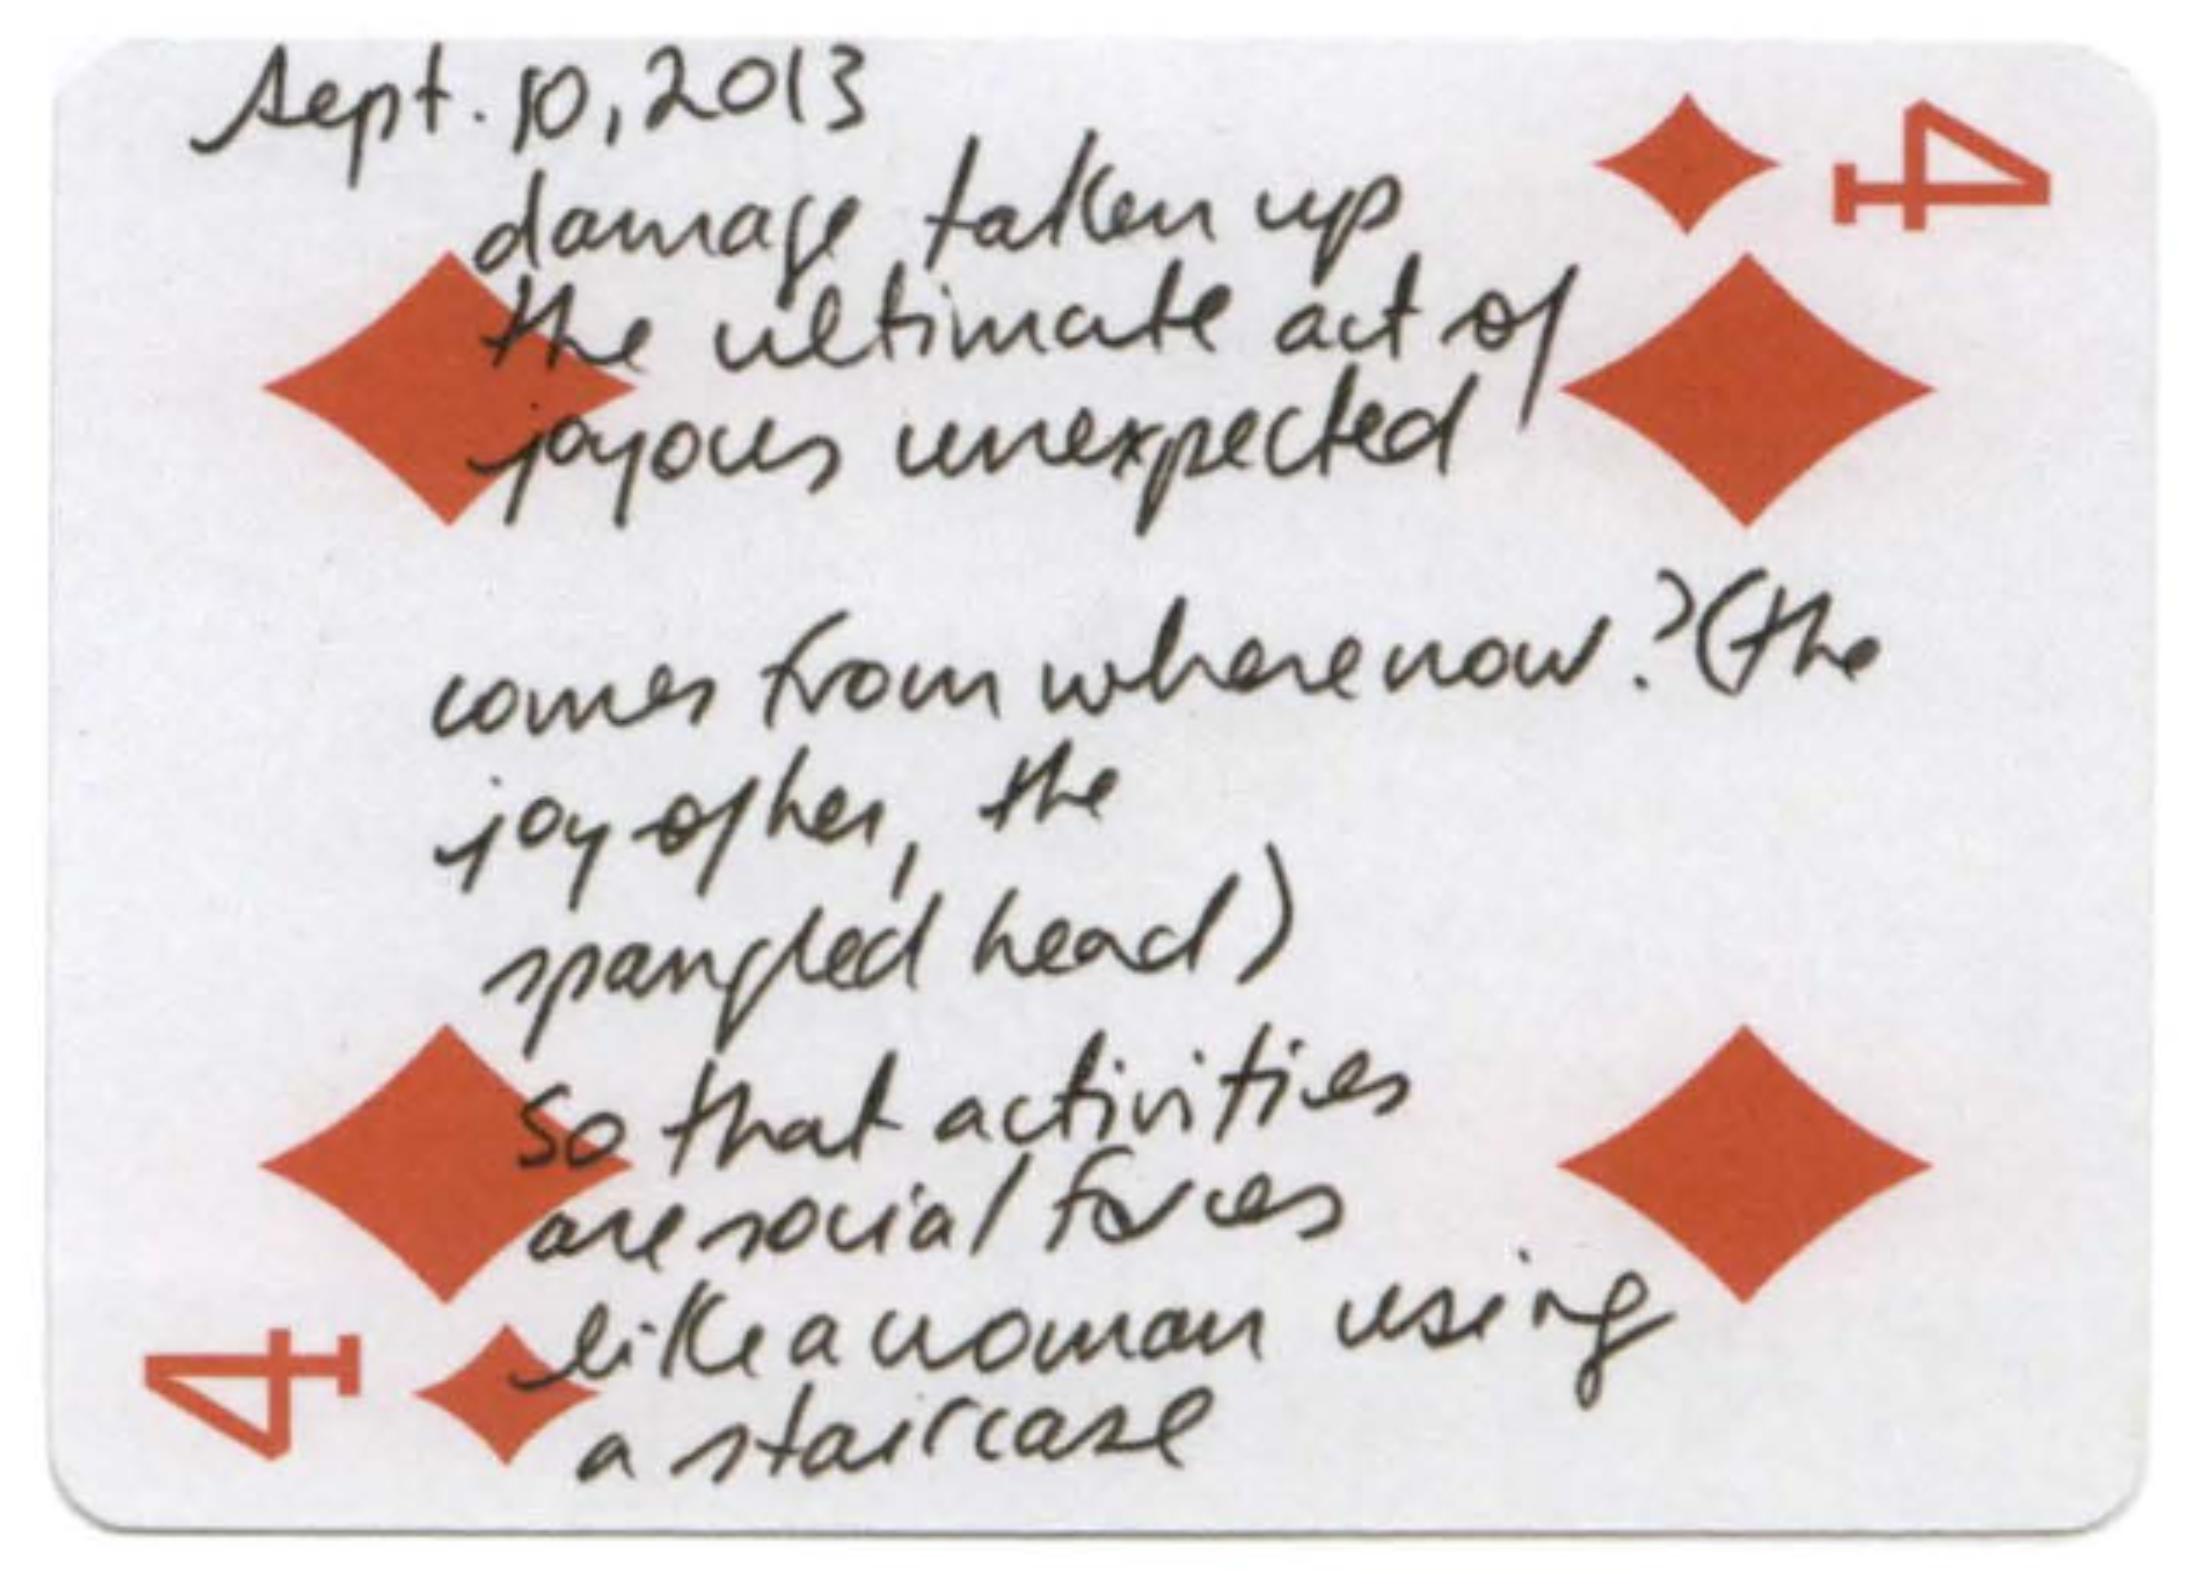 Sept. 10, 2013
4
damage taken up
the ultimate act of
joyous unexpected
comes from where now? (the
joy of her, the
spangled head)
So that activities
are social forces
like a woman using
4
a staircase